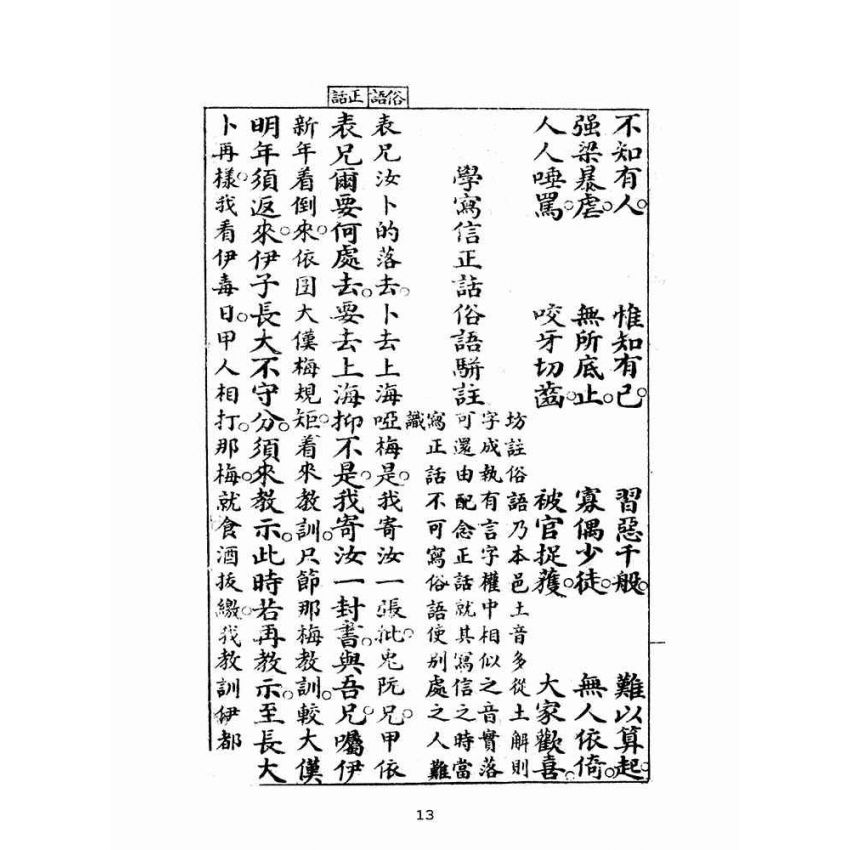 俗語
正話
不知有人。惟知有己。習惡千般。難以算起。
强梁暴虐。無所底止。寡偶少徒。無人依倚。
人人唾罵。咬牙切齒。被官捉獲。大家歡喜。
學寫信正話俗語駢註
坊註俗語乃本邑土音多從土解則
字成執有言字權中相似之音實落
可還由配念正話就其寫信之時當
寫正話不可寫俗語使别處之人難
識
表兄汝卜的落去。卜去上海啞梅是。我寄汝一張批。鬼阮兄。甲依
表兄爾要何處去。要去上海抑不是。我寄汝一封書。與吾兄。囑伊
新年着倒來。依囝大僕梅規矩。着來教訓。只節那梅教訓。較大僕
明年須返來。伊子長大不守分。須來教示。此時若再教示。至長大
卜再樣。我看伊毒日。甲人相打。那梅。就食酒拔繳。我教訓伊都
13